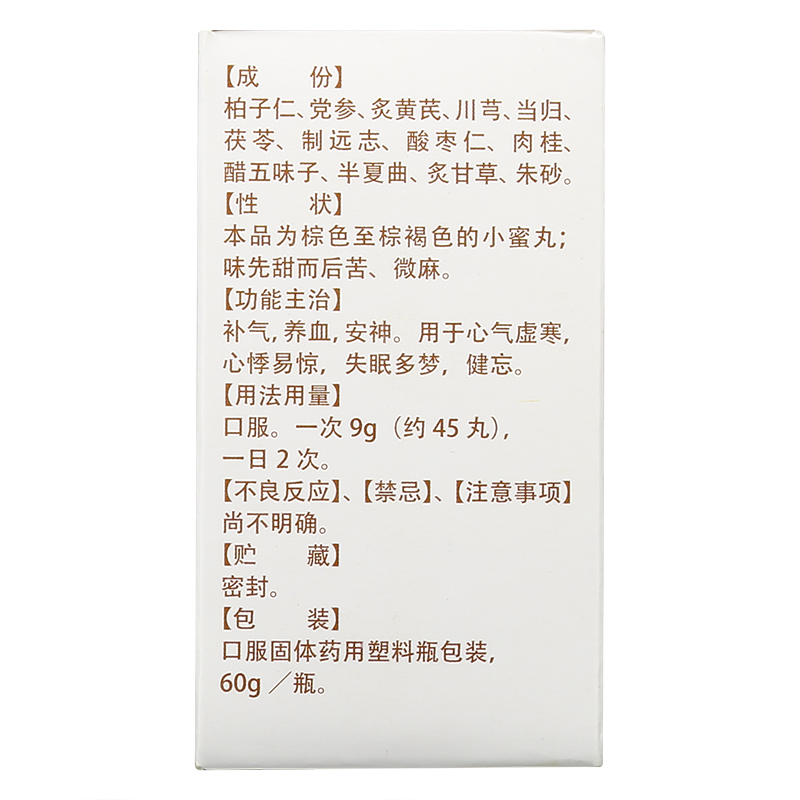 【成　　份】
柏子仁、党参、炙黄芪、川芎、当归、
茯苓、制远志、酸枣仁、肉桂、
醋五味子、半夏曲、炙甘草、朱砂。
【性　　状】
本品为棕色至棕褐色的小蜜丸；
味先甜而后苦、微麻。
【功能主治】
补气，养血，安神。用于心气虚寒，
心悸易惊，失眠多梦，健忘。
【用法用量】
口服。一次 9g（约 45 丸），
一日 2 次。
【不良反应】、【禁忌】、【注意事项】
尚不明确。
【贮　　藏】
密封。
【包　　装】
口服固体药用塑料瓶包装，
60g／瓶。